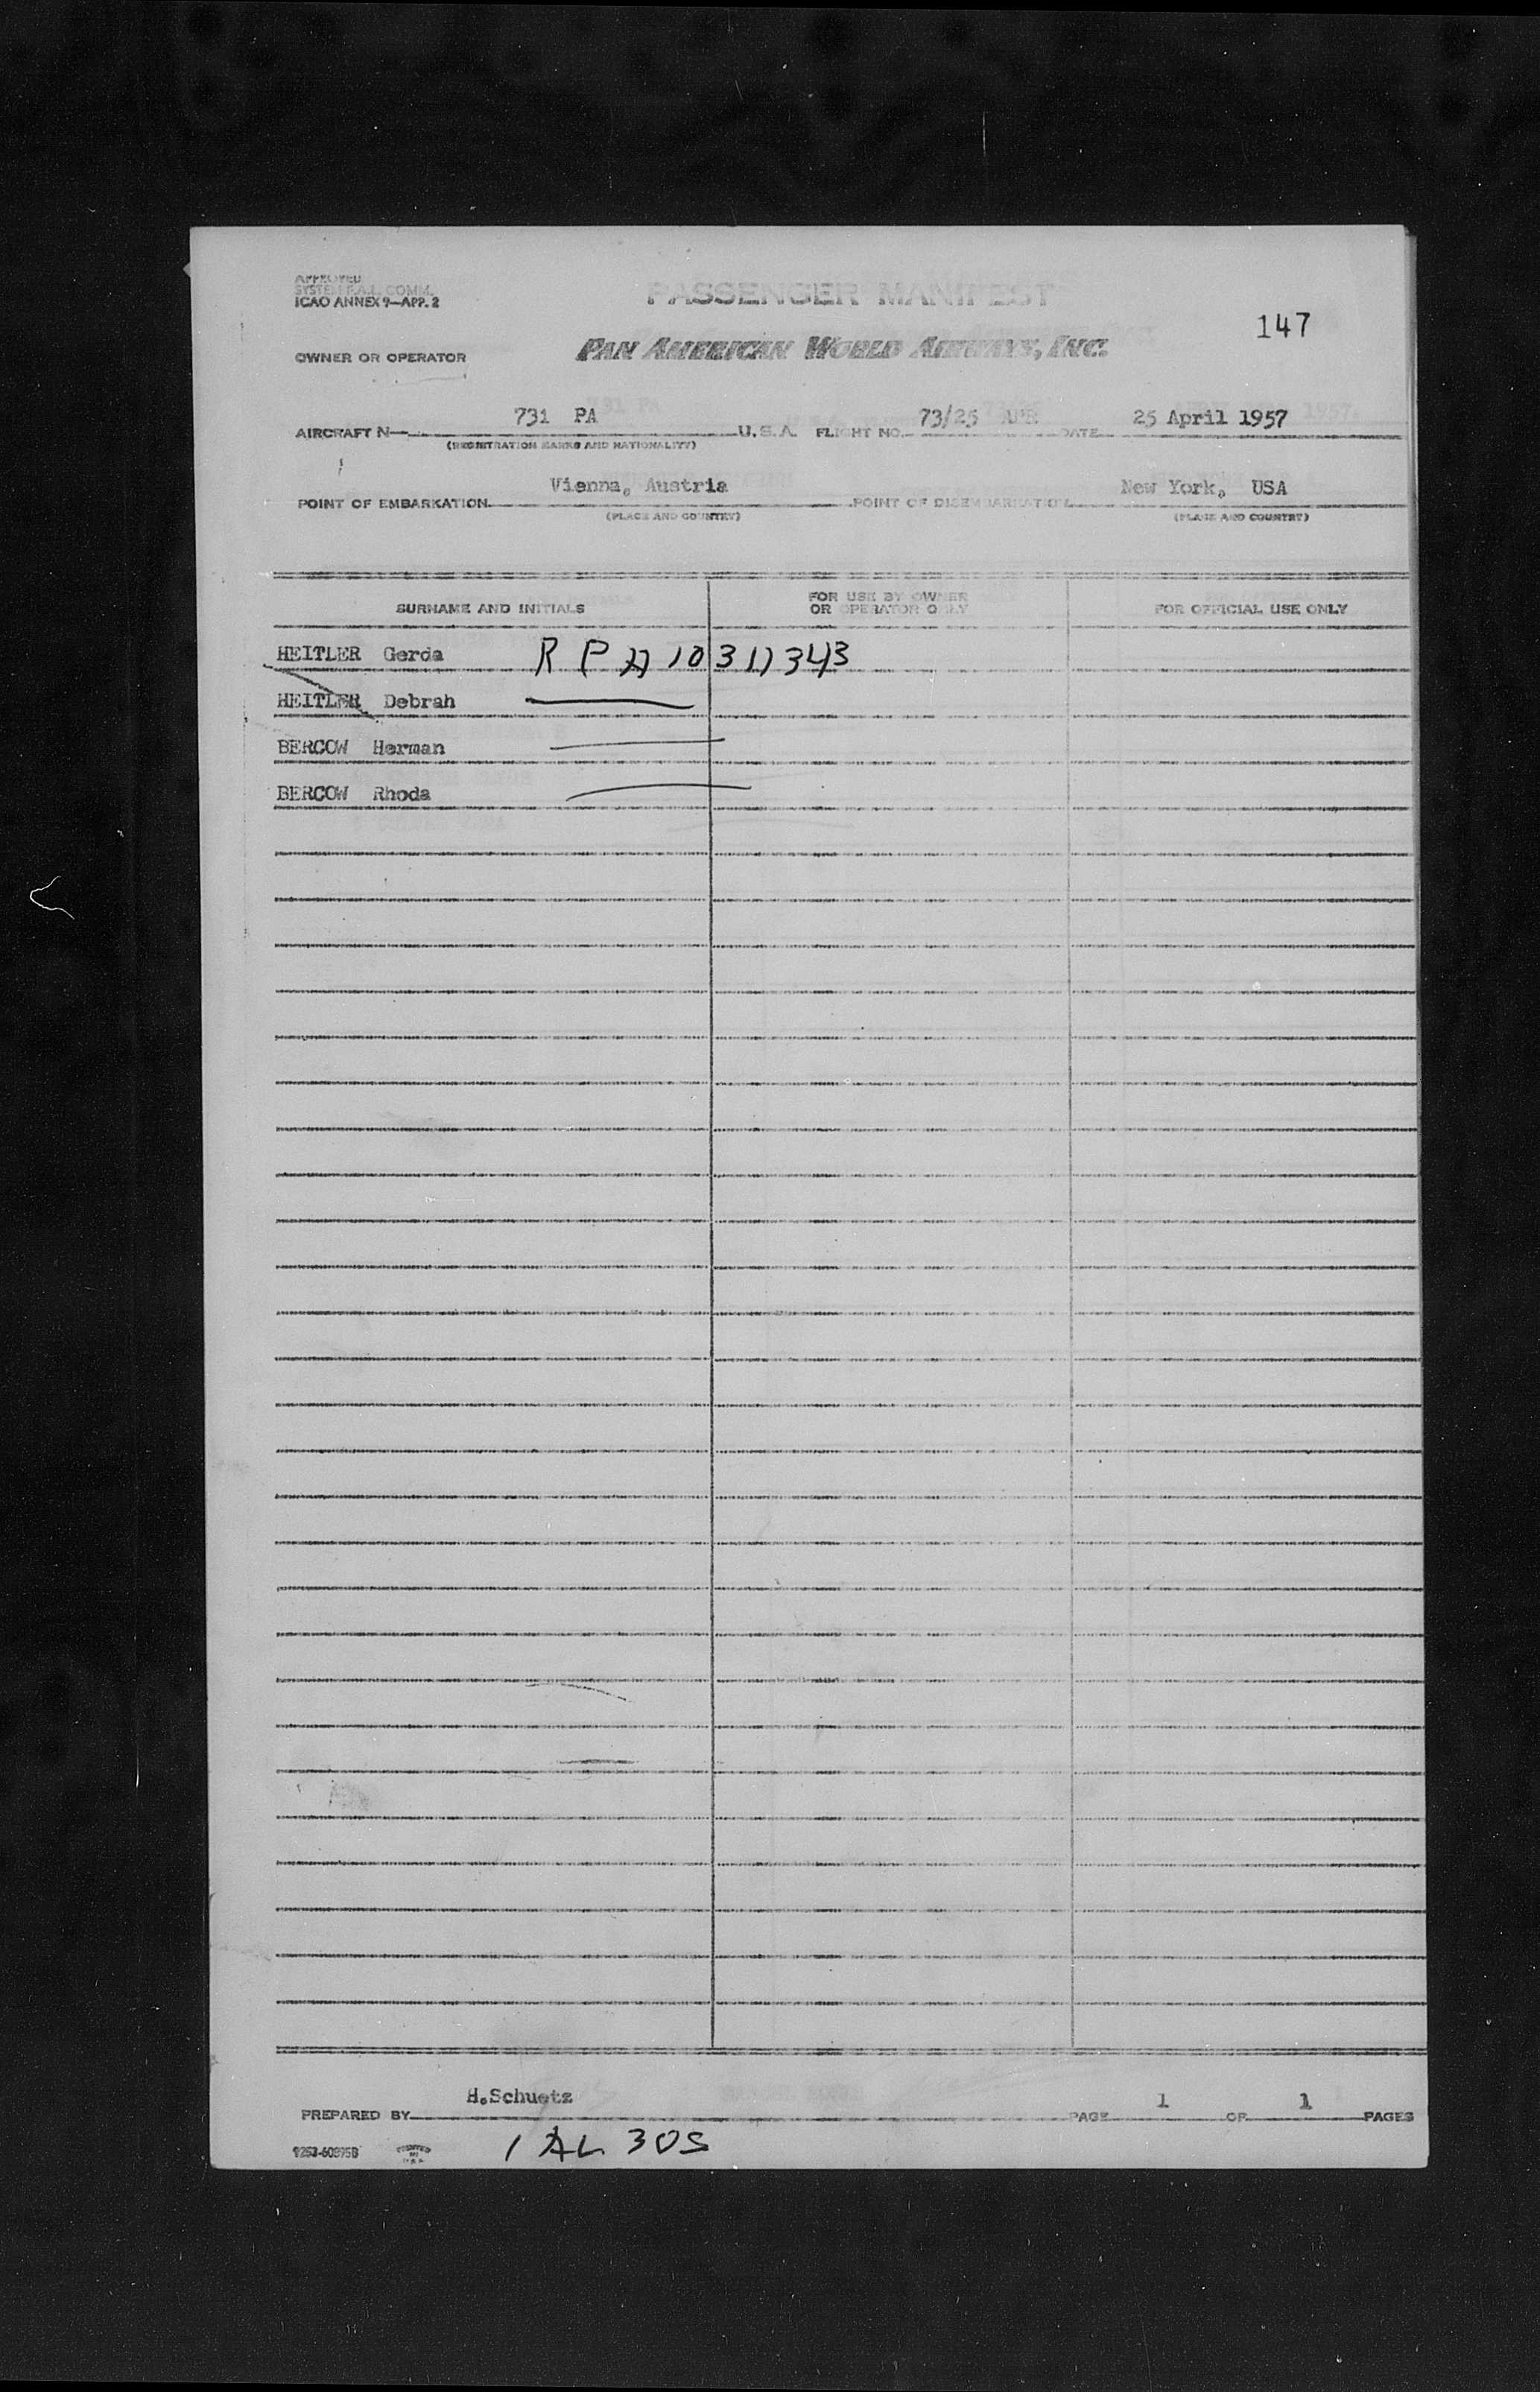 APPROVED
SYSTEM F.A.L. COMM.
ICAO ANNEX 9—APP. 2
PASSENGER MANIFEST
147
OWNER OR OPERATOR
PAN AMERICAN WORLD AIRWAYS, INC.
AIRCRAFT N— 731 PA U.S.A. FLIGHT NO. 73/25 APR DATE 25 April 1957
(REGISTRATION MARKS AND NATIONALITY)
POINT OF EMBARKATION Vienna, Austria POINT OF DISEMBARKATION New York, USA
(PLACE AND COUNTRY) (PLACE AND COUNTRY)
SURNAME AND INITIALS FOR USE BY OWNER OR OPERATOR ONLY FOR OFFICIAL USE ONLY
HEITLER Gerda R P A 10311343
HEITLER Debrah
BERCOW Herman
BERCOW Rhoda
PREPARED BY H.Schuetz PAGE 1 OF 1 PAGES
9253-60895B PRINTED IN U.S.A.
1 AL 305